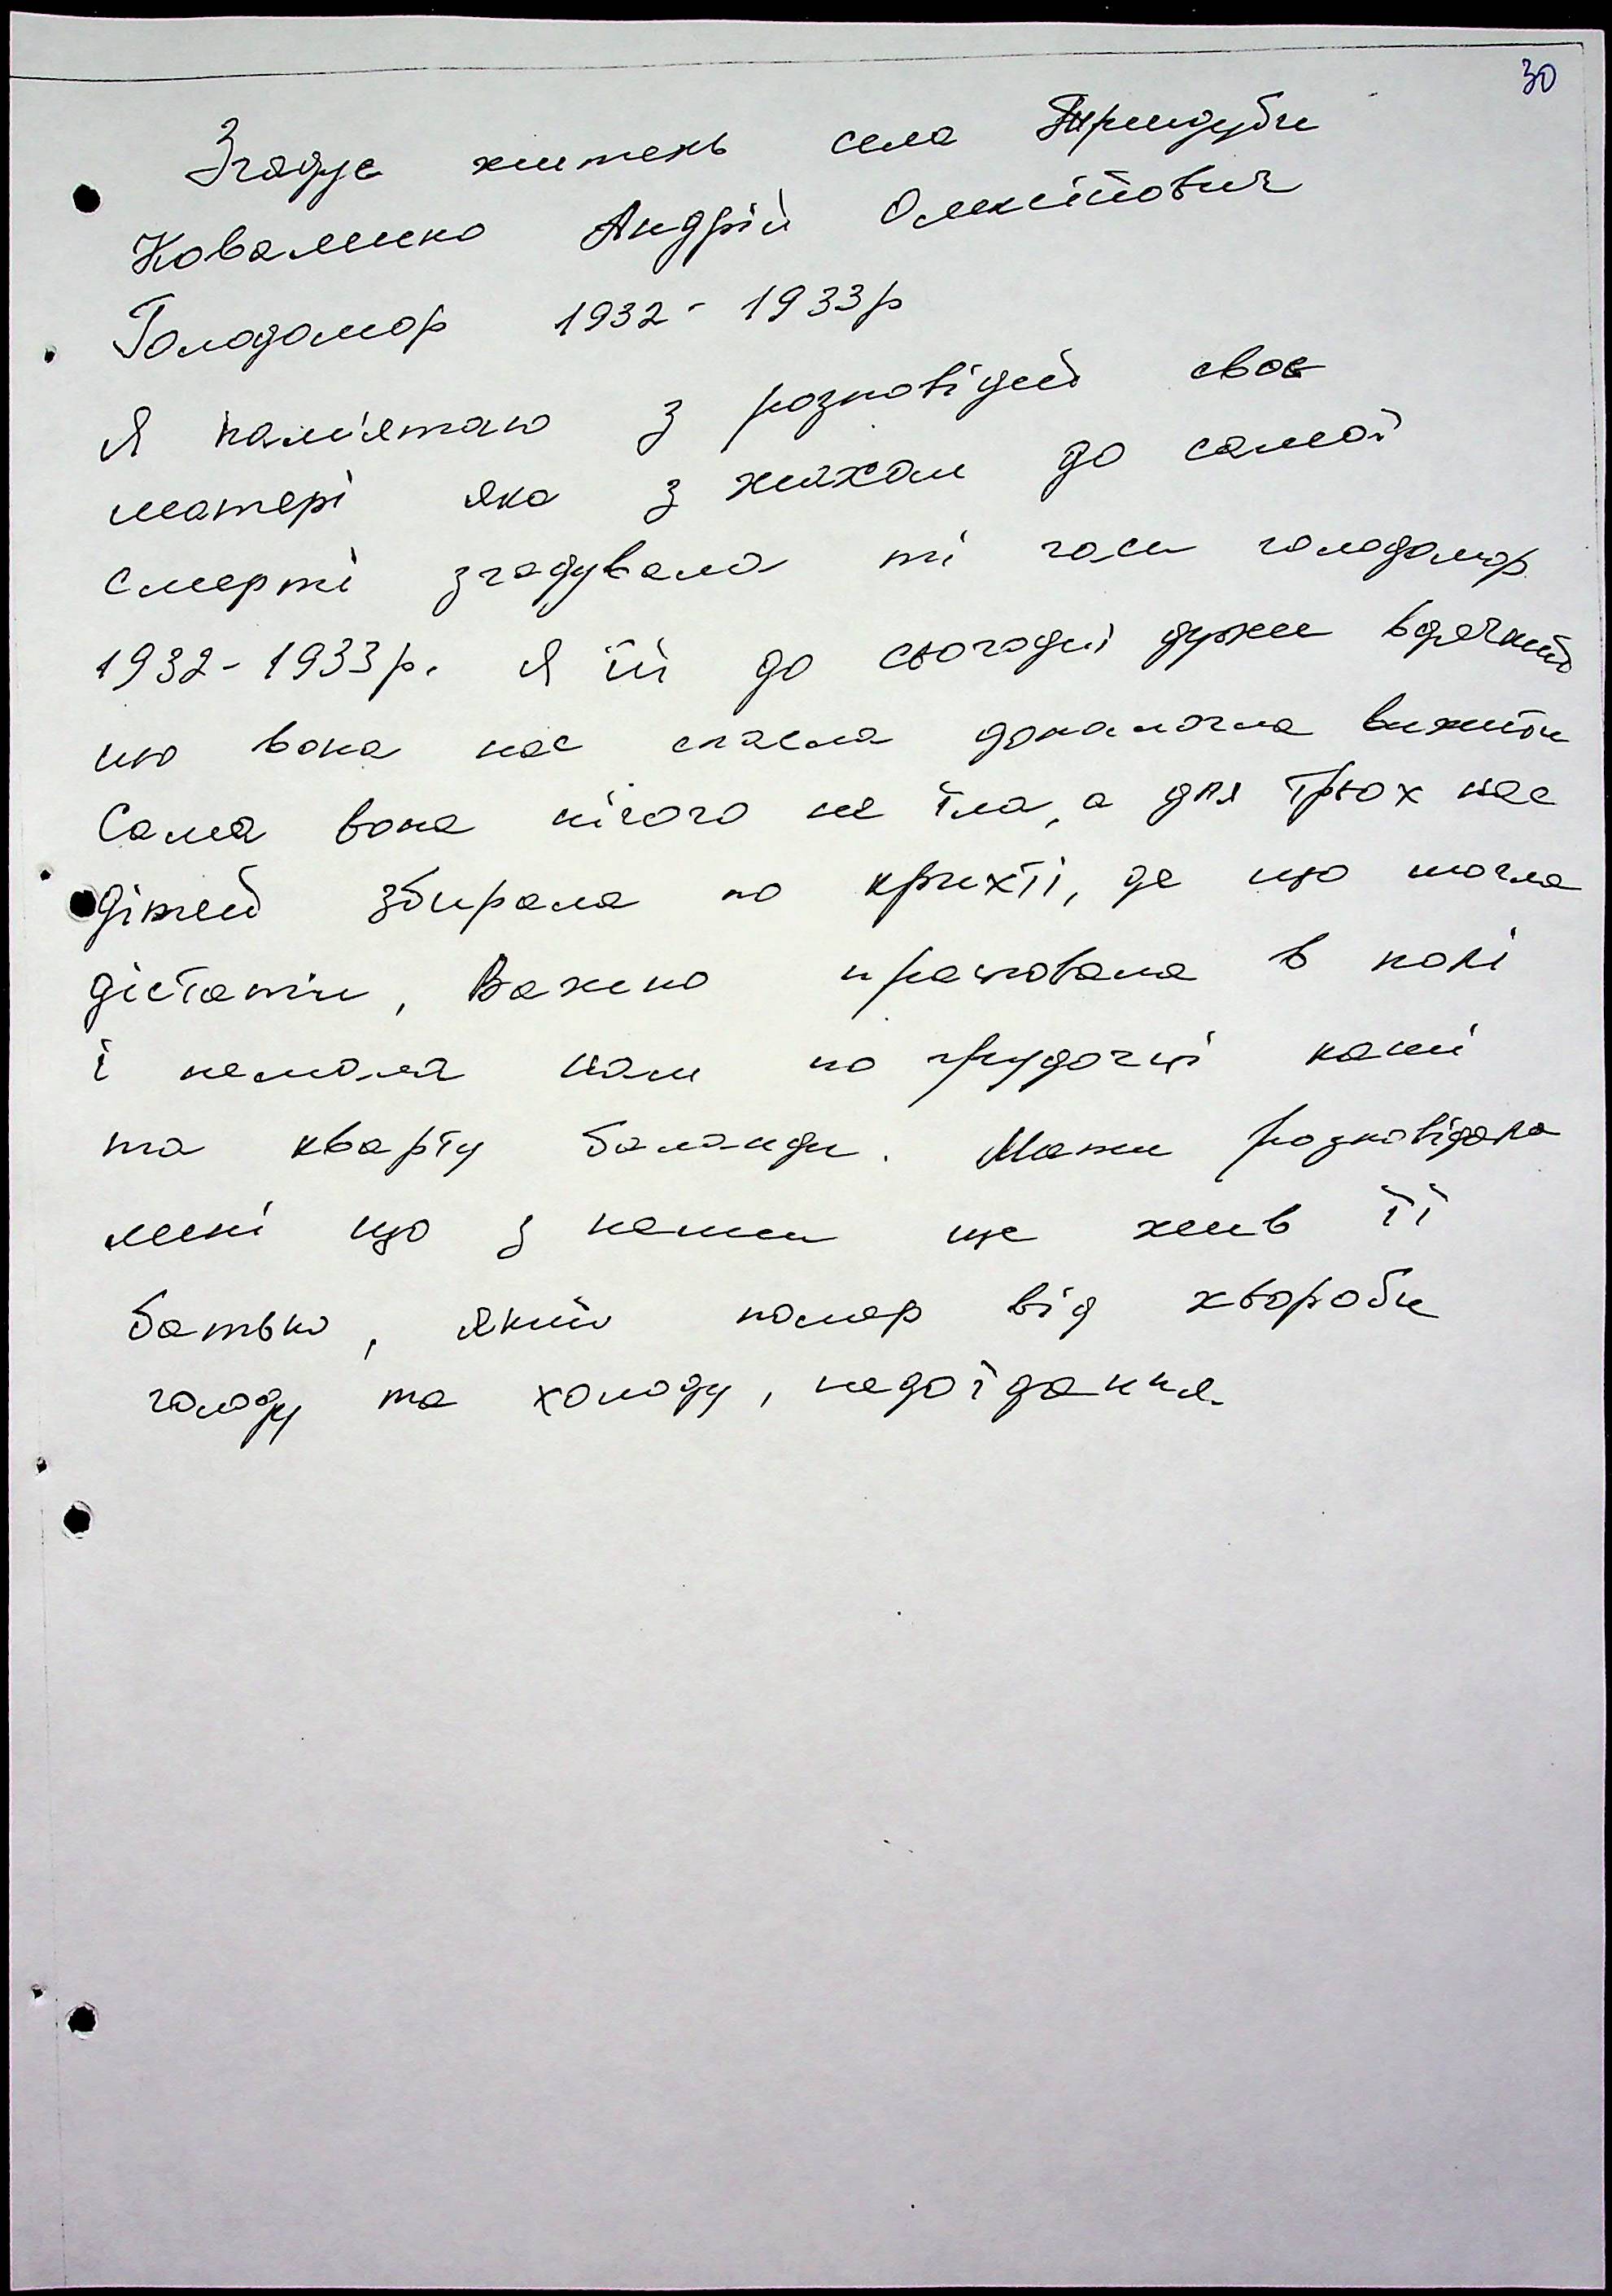 30
Згадує житель села Тридуби
Коваленко Андрій Олексійович
Голодомор 1932 - 1933р
Я пам'ятаю з розповідей своє
матері яка з жахом до самої
смерті згадувала ті часи голодомор
1932-1933р. Я їй до сьогодні дуже вдячний
що вона нас спасла допомогла вижити
Сама вона нічого не їла, а для трьох нас
дітей збирала по крихті, де що могла
дістати, Важко працювала в полі
і немала нам по грудочці каші
та кварту баланди. Мати розповідала
мені що з нами ще жив її
батько, який помер від хвороби
голоду та холоду, недоїдання.